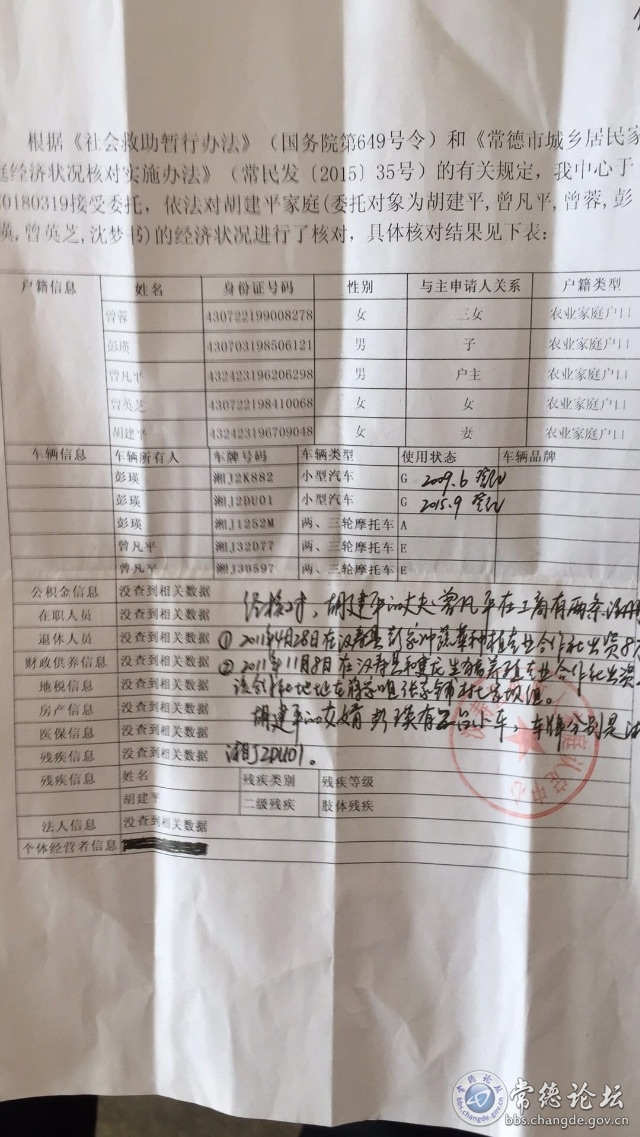 根据《社会救助暂行办法》（国务院第649号令）和《常德市城乡居民家
庭经济状况核对实施办法》（常民发〔2015〕35号）的有关规定，我中心于
20180319接受委托，依法对胡建平家庭(委托对象为胡建平,曾凡平,曾蓉,彭
瑛,曾英芝,沈梦书)的经济状况进行了核对，具体核对结果见下表：
户籍信息 姓名 身份证号码 性别 与主申请人关系 户籍类型
曾蓉 430722199008278 女 三女 农业家庭户口
彭瑛 430703198506121 男 子 农业家庭户口
曾凡平 432423196206298 男 户主 农业家庭户口
曾英芝 430722198410068 女 女 农业家庭户口
胡建平 432423196709048 女 妻 农业家庭户口
车辆信息 车辆所有人 车牌号码 车辆类型 使用状态 车辆品牌
彭瑛 湘J2K882 小型汽车 G 2009.6 登记
彭瑛 湘J2DU01 小型汽车 G 2015.9 登记
彭瑛 湘J1252M 两、三轮摩托车 A
曾凡平 湘J32D77 两、三轮摩托车 E
曾凡平 湘J36597 两、三轮摩托车 E
公积金信息 没查到相关数据
经核对，胡建平的丈夫曾凡平在工商有两条注册
在职人员 没查到相关数据
退休人员 没查到相关数据
①2011年4月28日在汉寿县彭家冲蔬菜种植专业合作社出资
财政供养信息 没查到相关数据
②2011年11月8日在汉寿县和建龙生猪养殖专业合作社出资
地税信息 没查到相关数据
房产信息 没查到相关数据
胡建平的女婿彭瑛有 台小车，车牌分别是
医保信息 没查到相关数据
残疾信息 没查到相关数据
湘J2DU01。
残疾信息 姓名 残疾类别 残疾等级
胡建平 二级残疾 肢体残疾
法人信息 没查到相关数据
个体经营者信息
认定中心
常德论坛
bbs.changde.gov.cn